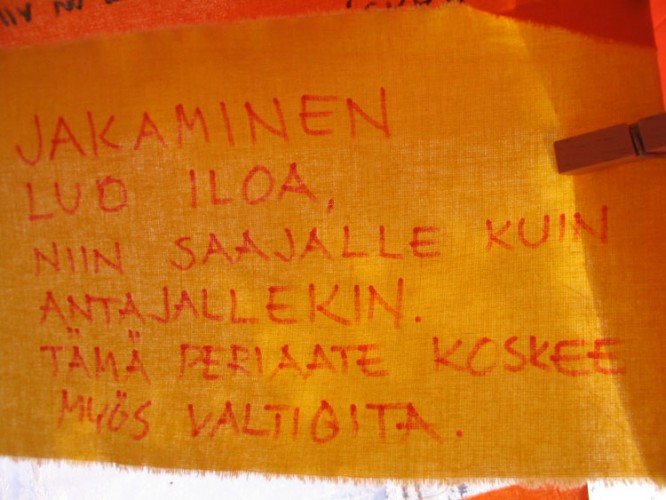 JAKAMINEN
LUO ILOA,
NIIN SAAJALLE KUIN
ANTAJALLEKIN.
TÄMÄ PERIAATE KOSKEE
MYÖS VALTIOITA.